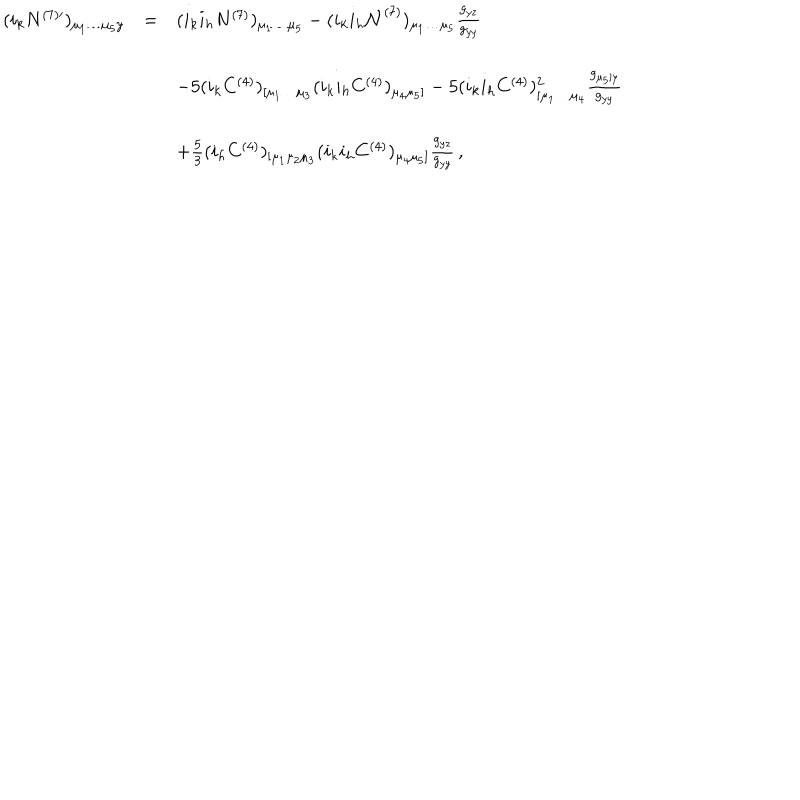 (i_k N^{(7)\prime})_{\mu_1 \dots \mu_5 y} = (i_k i_h N^{(7)})_{\mu_1 \dots \mu_5} - (i_k i_h \mathcal{N}^{(7)})_{\mu_1 \dots \mu_5} \frac{g_{yz}}{g_{yy}}
-5 (i_k C^{(4)})_{[\mu_1 \dots \mu_3} (i_k i_h C^{(4)})_{\mu_4 \mu_5]} - 5 (i_k i_h C^{(4)})^2_{[\mu_1 \dots \mu_4} \frac{g_{\mu_5] y}}{g_{yy}}
+\frac{5}{3} (i_h C^{(4)})_{[\mu_1 \mu_2 \mu_3} (i_k i_h C^{(4)})_{\mu_4 \mu_5]} \frac{g_{yz}}{g_{yy}} ,